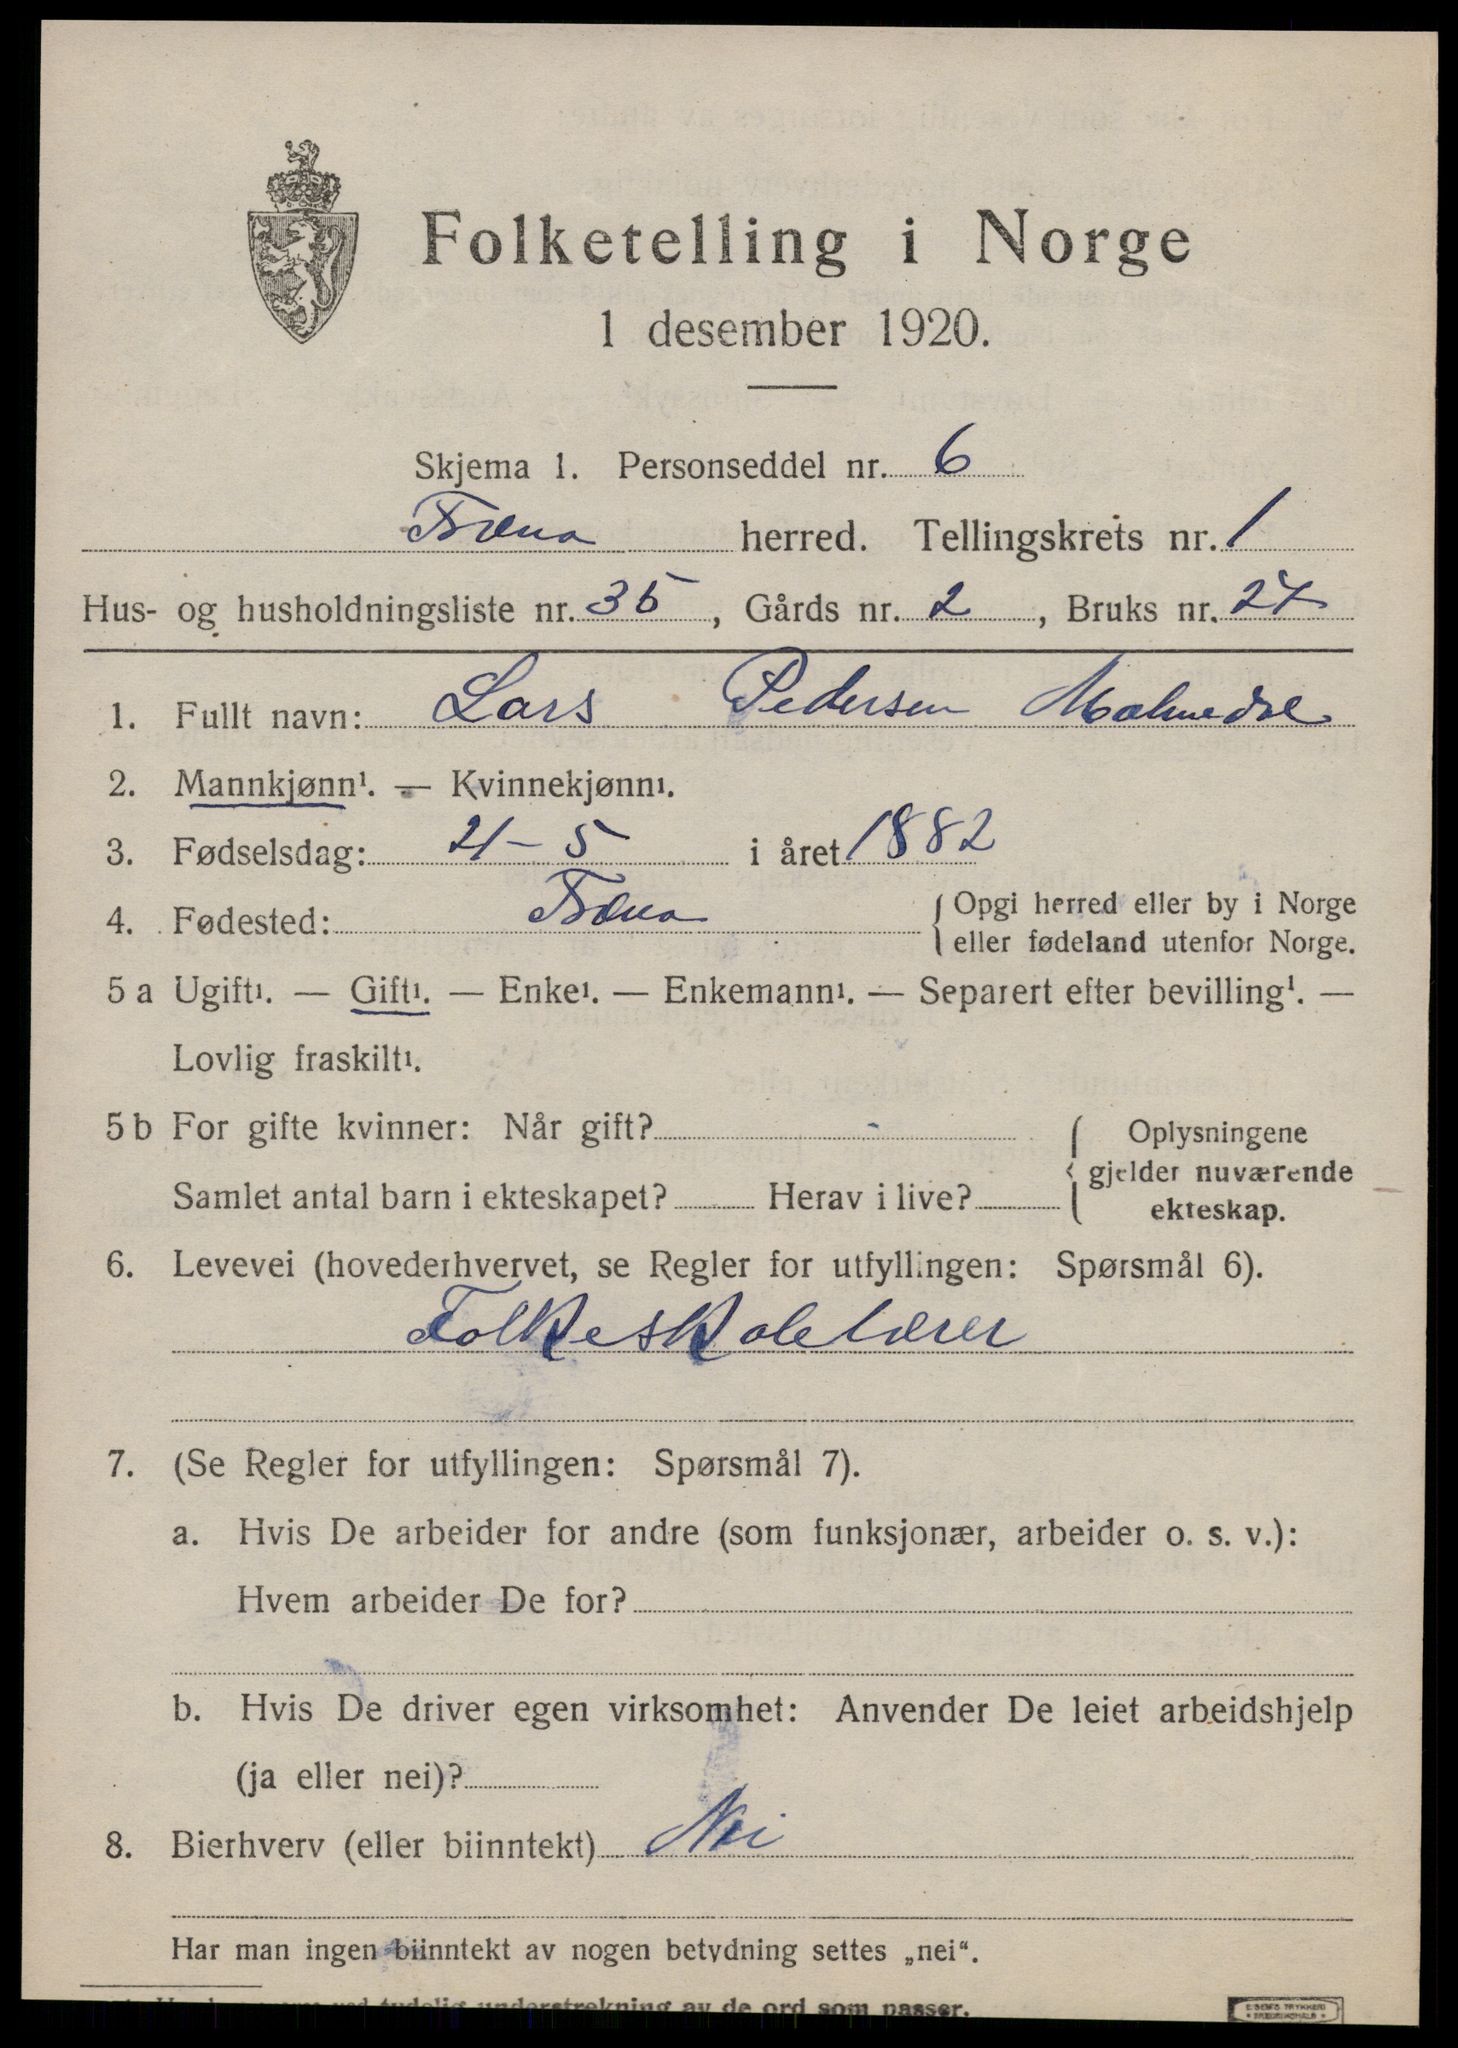 Folketelling i Norge
1 desember 1920.
Skjema 1. Personseddel nr. 6
Fræna herred. Tellingskrets nr. 1
Hus- og husholdningsliste nr. 35, Gårds nr. 2, Bruks nr. 27
1. Fullt navn: Lars Pedersen Malmedal
2. Mannkjønn¹. — Kvinnekjønn¹.
3. Fødselsdag: 21-5 i året 1882
4. Fødested: Fræna { Opgi herred eller by i Norge
eller fødeland utenfor Norge.
5 a Ugift¹. — Gift¹. — Enke¹. — Enkemann¹. — Separert efter bevilling¹. —
Lovlig fraskilt¹.
5 b For gifte kvinner: Når gift? - { Oplysningene
gjelder nuværende
Samlet antal barn i ekteskapet? Herav i live?
ekteskap.
6. Levevei (hovederhvervet, se Regler for utfyllingen: Spørsmål 6).
Folkeskolelærer
7. (Se Regler for utfyllingen: Spørsmål 7).
a. Hvis De arbeider for andre (som funksjonær, arbeider o. s. v.):
Hvem arbeider De for?
b. Hvis De driver egen virksomhet: Anvender De leiet arbeidshjelp
(ja eller nei)?
8. Bierhverv (eller biinntekt) Nei
Har man ingen biinntekt av nogen betydning settes „nei“.
ved tydelig understrekning av de ord som passer.